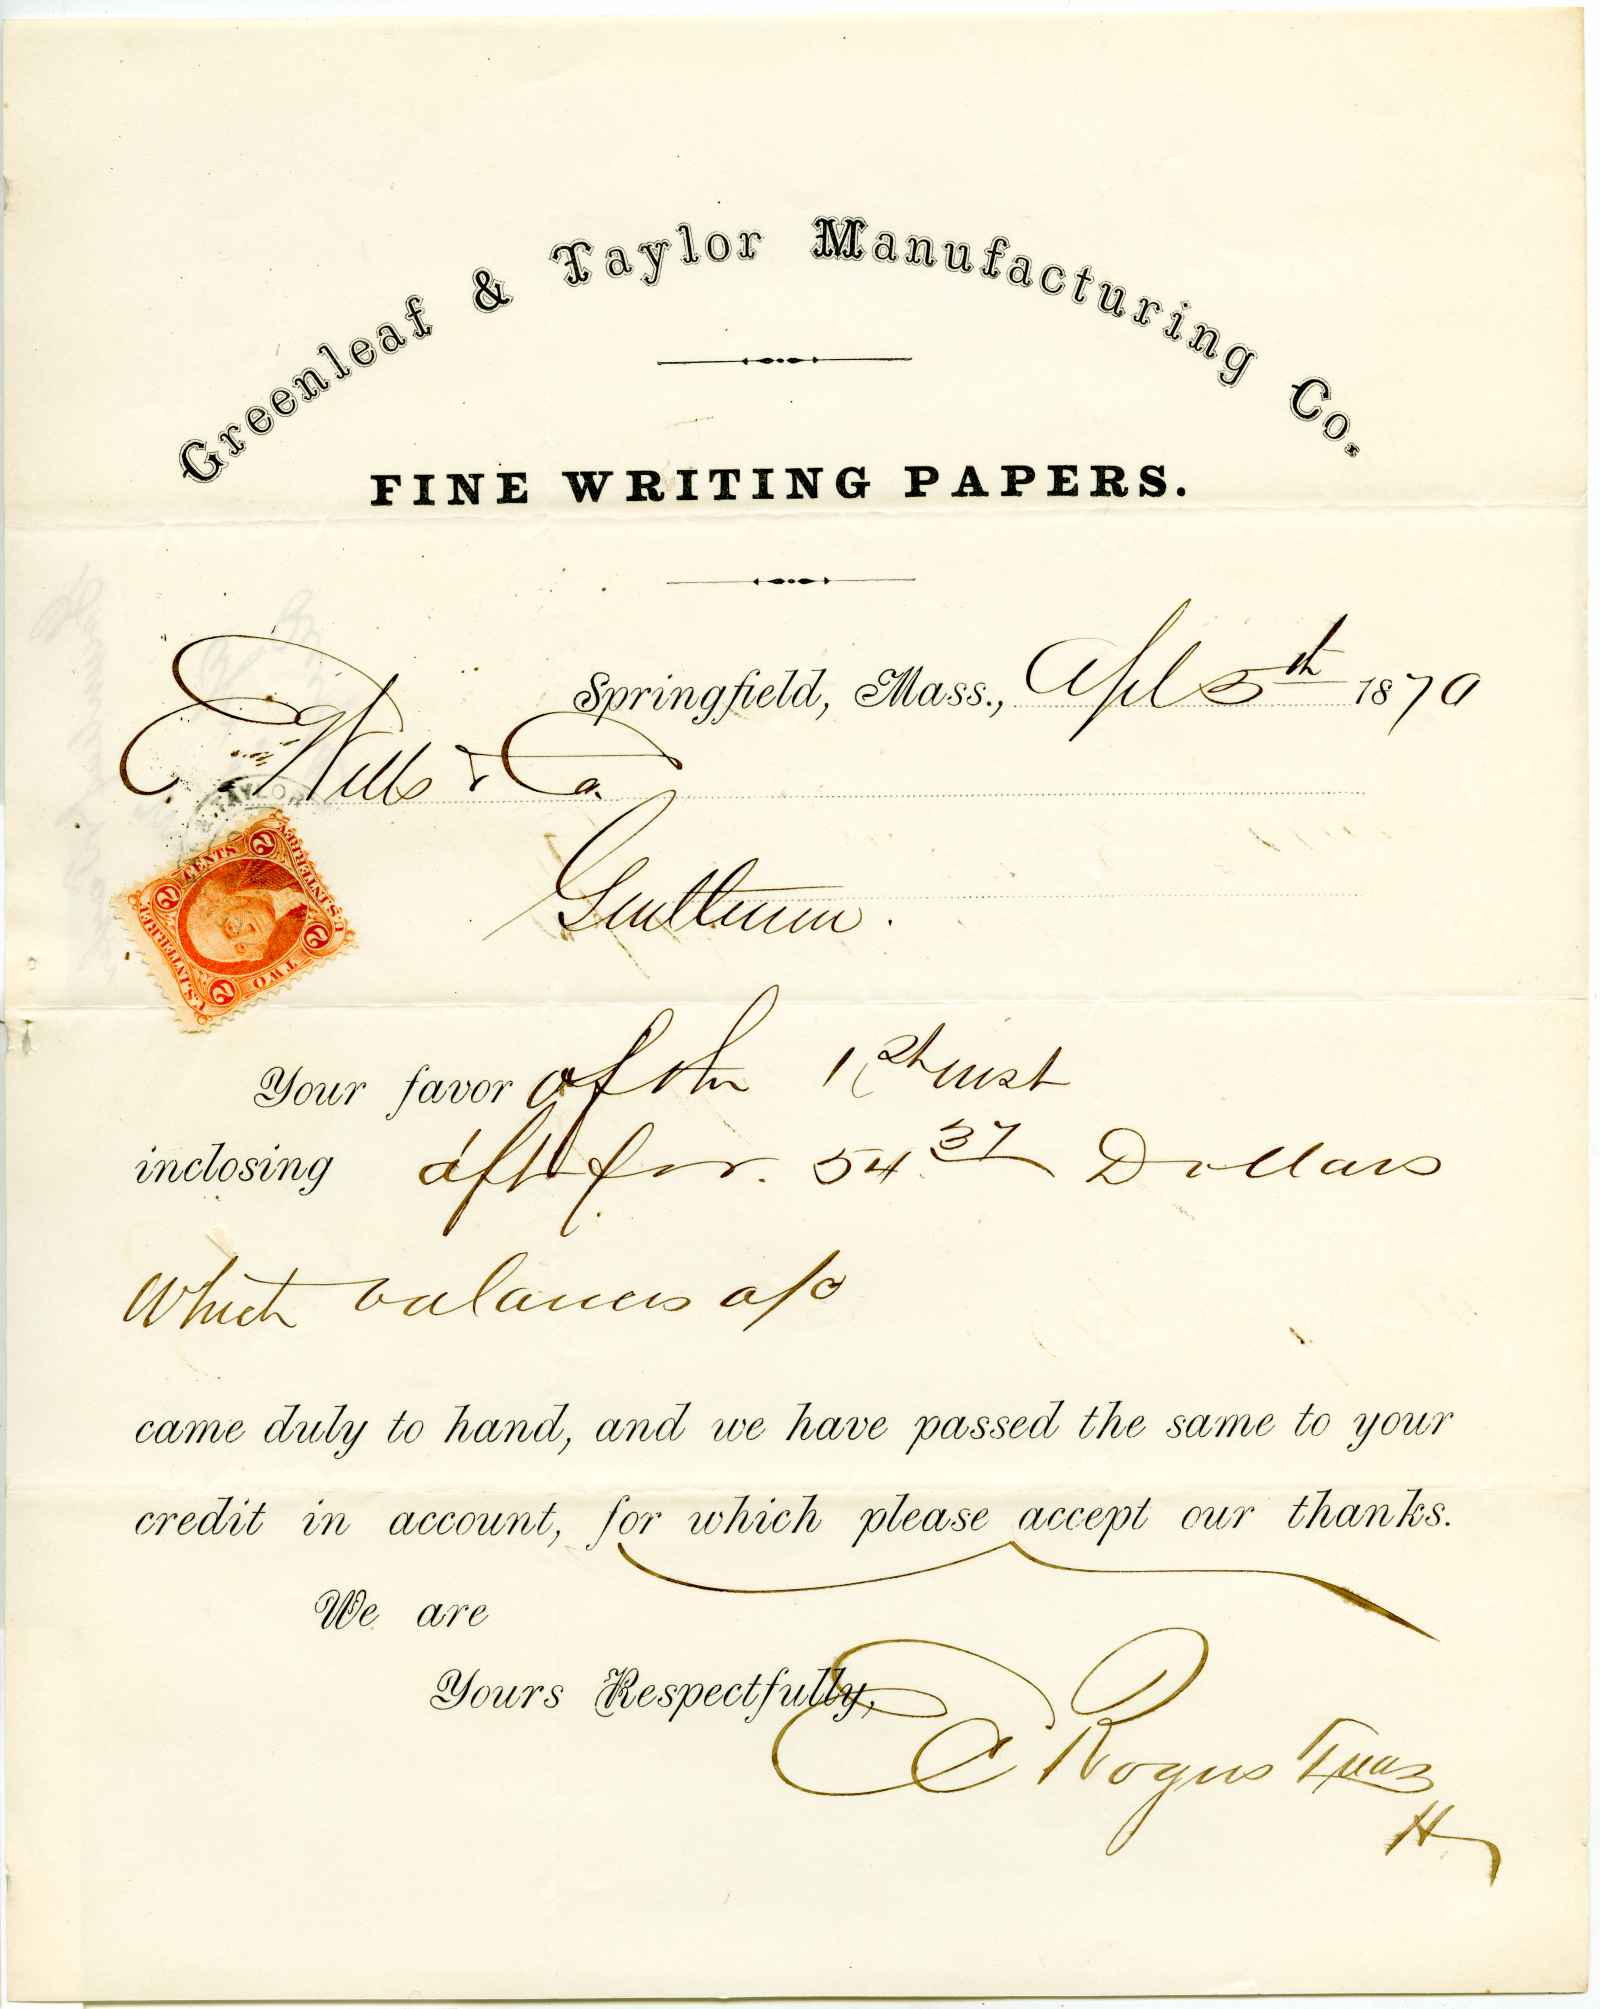 Greenleaf & Taylor Manufacturing Co.
FINE WRITING PAPERS.
Springfield, Mass., Apl 5th 1870
E Wills & Co.
TAYLOR
U.S. INTER. REV.
2 CENTS 2
2 TWO 2
U.S. INTER. REV.
Gentlemen.
Your favor of the 1st inst
inclosing dft for. 54.37 Dollars
Which balances a/c
came duly to hand, and we have passed the same to your
credit in account, for which please accept our thanks.
We are
Yours Respectfully,
E C Rogers Treas
H